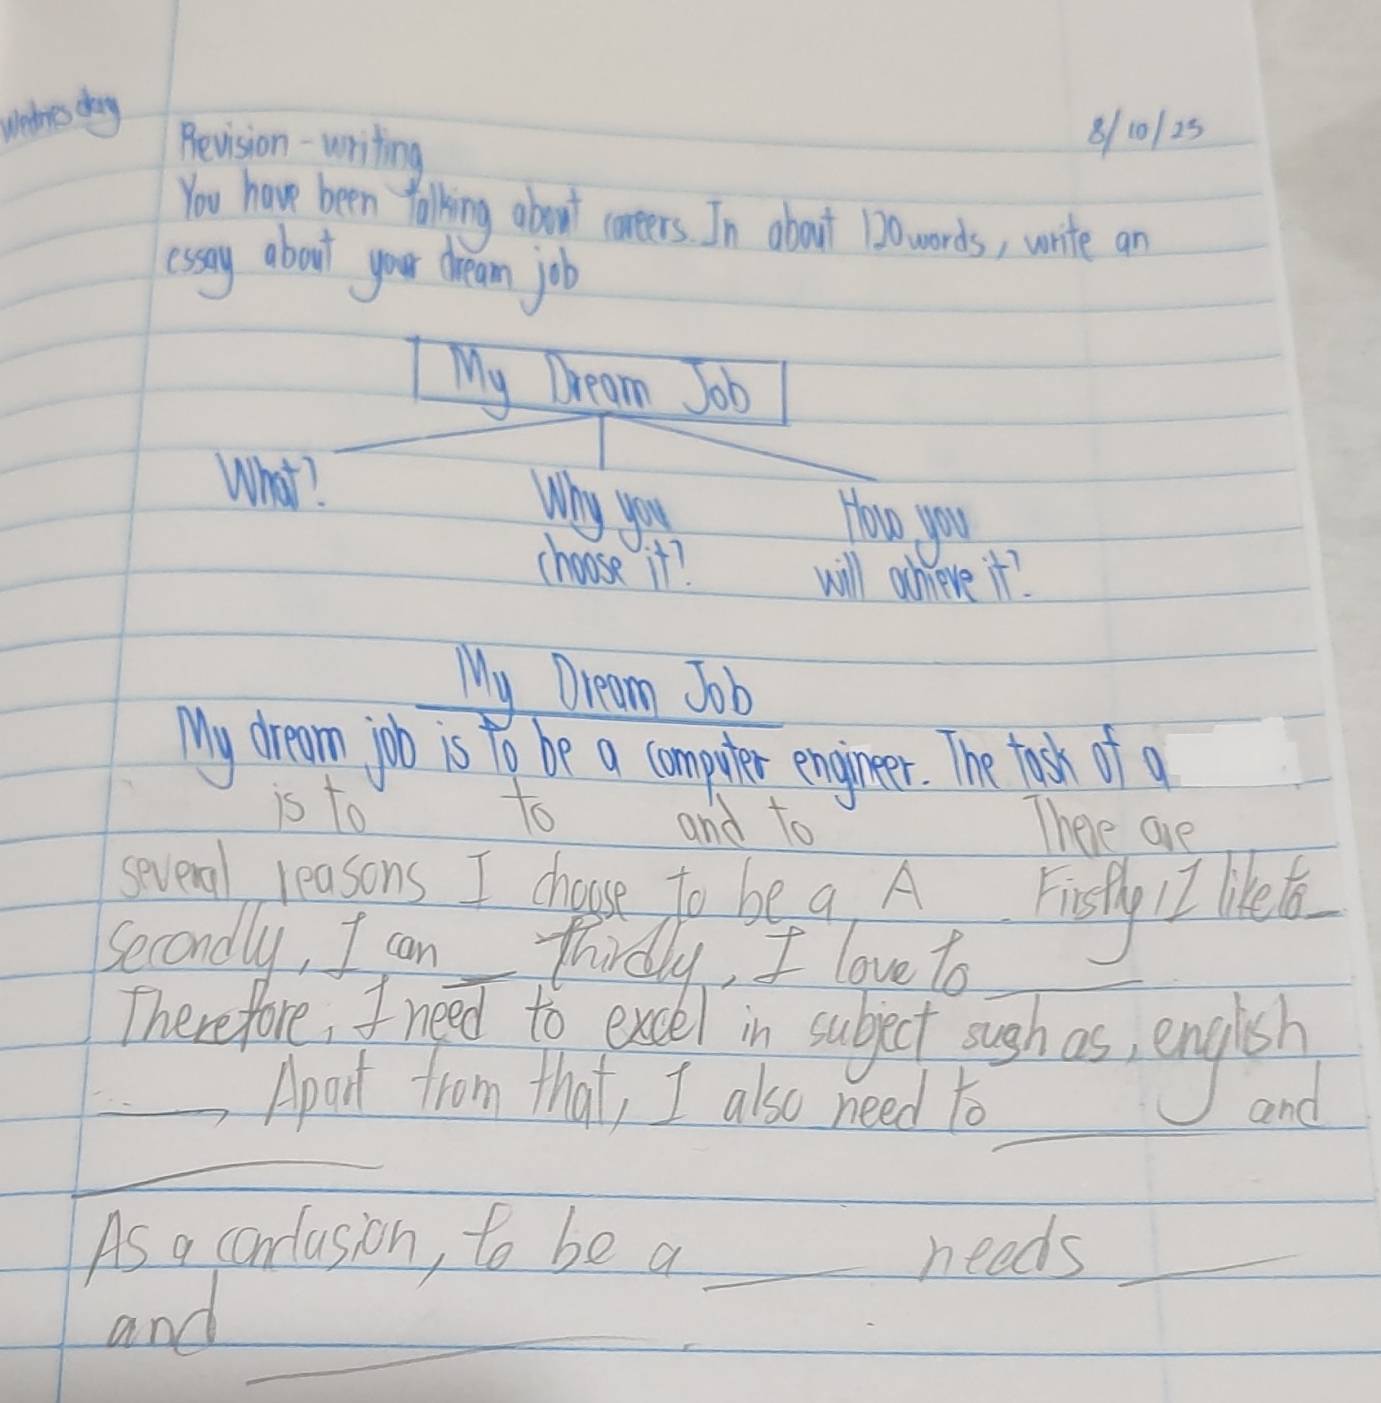 Wednesday
8/10/25
Revision - writing
You have been talking about careers. In about 120 words, write an
essay about your dream job
My Dream Job
What?
Why you
choose it?
How you
will achieve it?
My Dream Job
My dream job is to be a computer engineer. The task of a
is to to and to There are
several reasons I choose to be a A. Firstly, I like to
Secondly, I can _ Thirdly, I love to ____
Therefore, I need to excel in subject sugh as, english
____, Apart from that, I also need to ____ and
____
As a conclusion, to be a ____ needs ____
and ____.